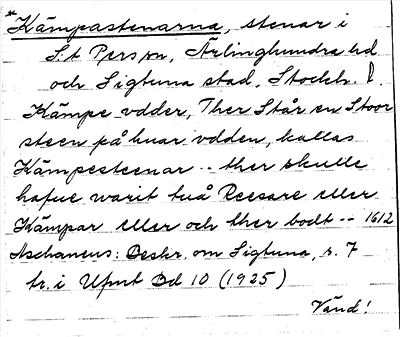 *Kämpastenarna, stenar i
S:t Pers sn, Ärlinghundra hd
och Sigtuna stad, Stockh. l.
Kämpe vdder, Ther Står en Stoor
steen på huar vdden, kallas
Kämpesteenar -- ther skulle
hafue warit tuå Reesare eller
Kämpar eller och ther bodt -- 1612
Aschaneus: Beskr. om Sigtuna, s. 7
tr. i Upmt Bd 10 (1925)
Vänd!